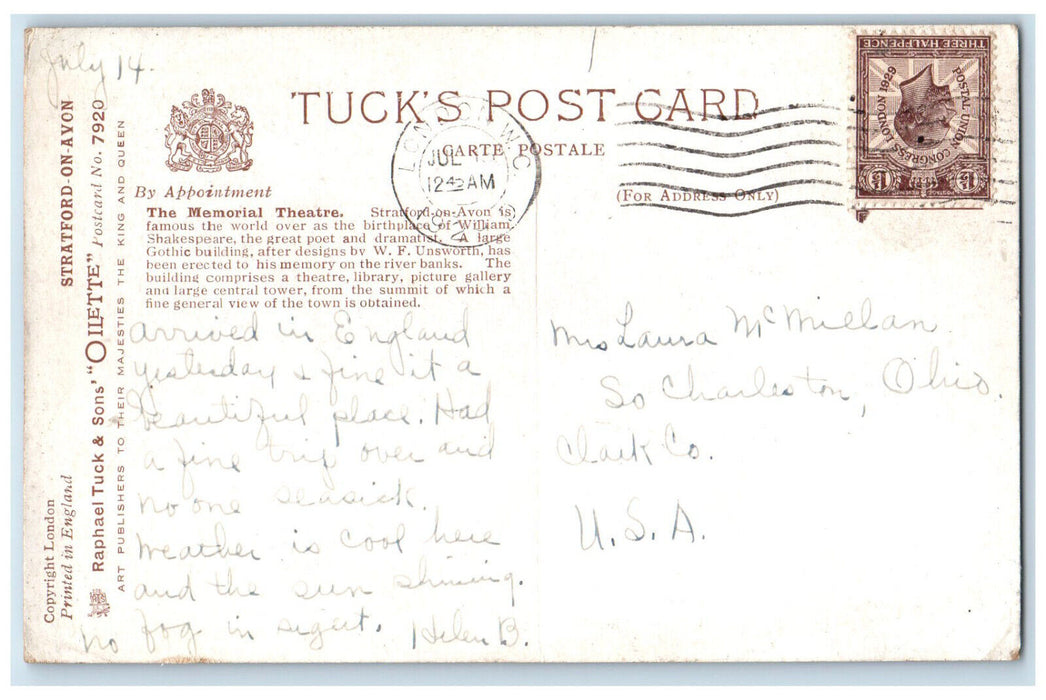 July 14.
TUCK'S POST CARD
CARTE POSTALE
(FOR ADDRESS ONLY)
By Appointment
The Memorial Theatre. Stratford-on-Avon is
famous the world over as the birthplace of William
Shakespeare, the great poet and dramatist. A large
Gothic building, after designs by W. F. Unsworth, has
been erected to his memory on the river banks. The
building comprises a theatre, library, picture gallery
and large central tower, from the summit of which a
fine general view of the town is obtained.
STRATFORD-ON-AVON
Postcard No. 7920
Raphael Tuck & Sons' "OILETTE"
ART PUBLISHERS TO THEIR MAJESTIES THE KING AND QUEEN
Copyright London
Printed in England
LONDON. W.C.
JUL
12 AM
POSTAL UNION CONGRESS LONDON 1929
THREE HALFPENCE
1½
1½
arrived in England
yesterday & fine it a
beautiful place. Had
a fine trip over and
no one seasick.
Weather is cool here
and the sun shining.
no fog in sight. Helen B.
Mrs Laura McMillan
So Charleston, Ohio.
Clark Co.
U.S.A.